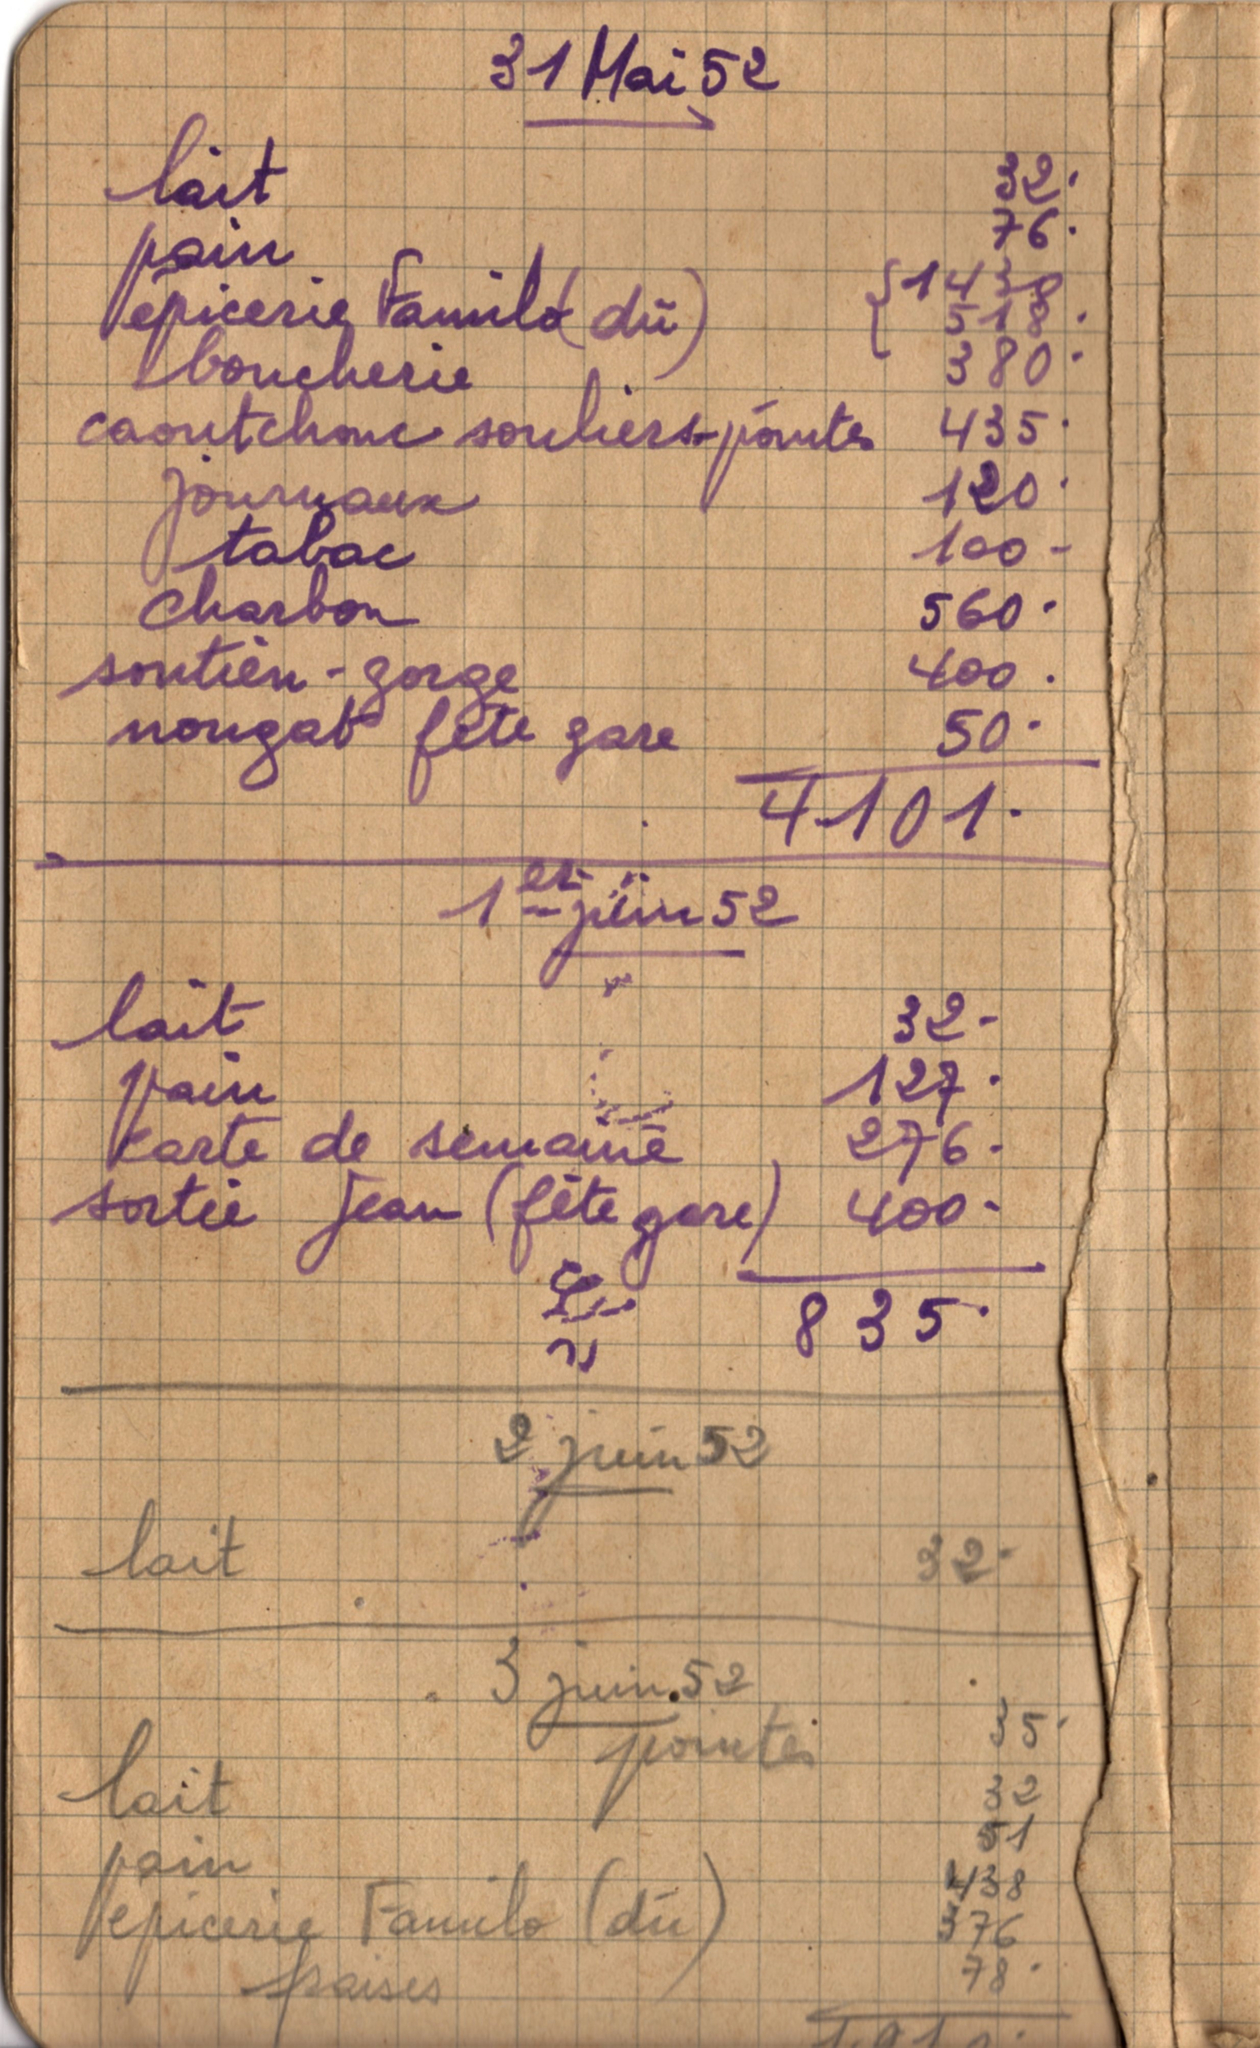 31 Mai 52
lait 32.
pain 76.
épicerie Familo (dû) { 1430
518.
boucherie 380.
caoutchouc souliers-pointes 435.
journaux 120.
tabac 100-
charbon 560.
soutien-gorge 400.
nougat fête gare 50.
4101.
1er juin 52
lait 32-
pain 127.
carte de semaine 276.
sortie Jean (fête gare) 400-
835.
2 juin 52
lait 32-
3 juin 52
pointes 35.
lait 32
pain 51
épicerie Familo (dû) 438
376
fraises 78.
1010.